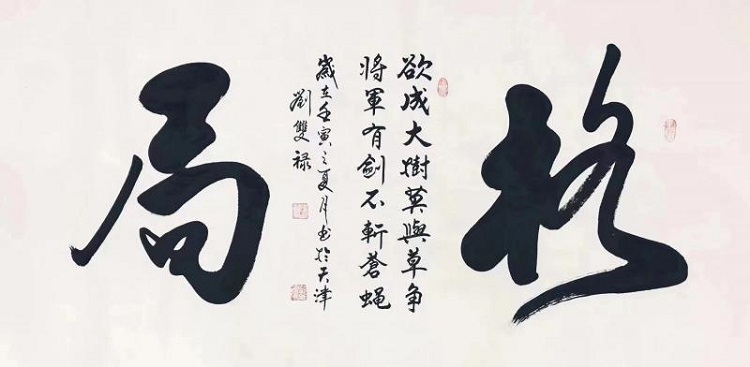 格
欲成大樹莫與草争
將軍有劍不斬蒼蝇
歲在壬寅之夏月书於天津
劉雙禄
局